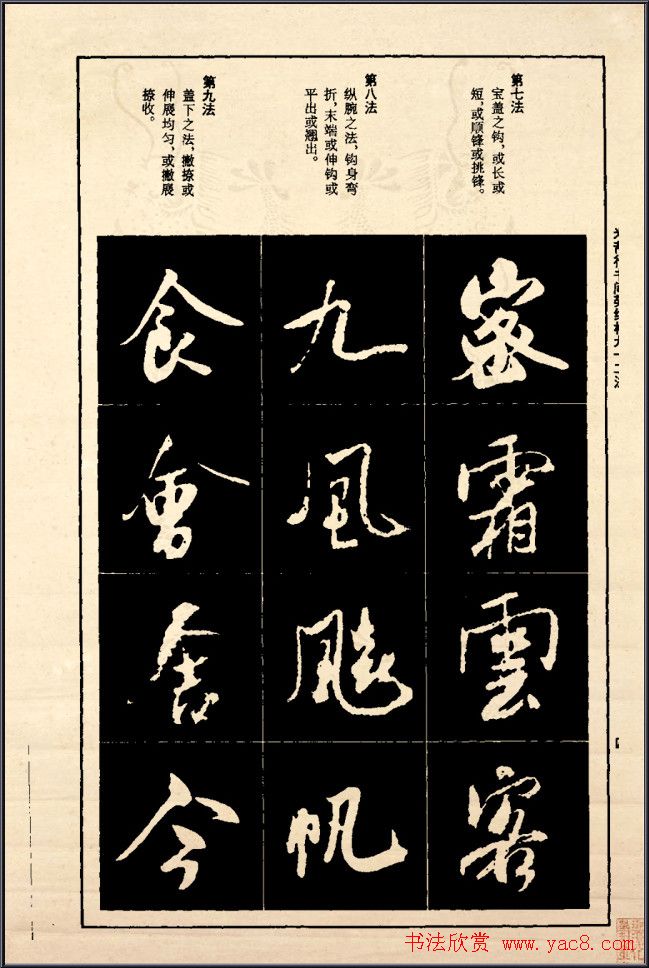 第七法
宝盖之钩，或长或
短，或顺锋或挑锋。
第八法
纵腕之法，钩身弯
折，末端或伸钩或
平出或翘出。
第九法
盖下之法，撇捺或
伸展均匀，或撇展
捺收。
密 霜 雲 客
九 風 飚 帆
食 會 舍 今
书法欣赏 www.yac8.com